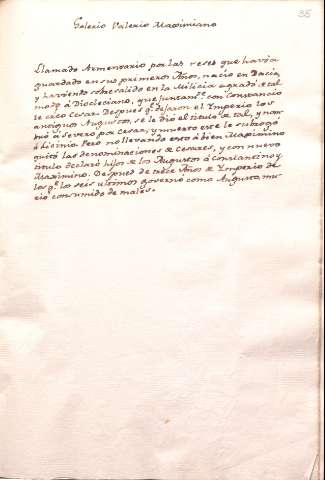 35
Galerio Valerio Maximiano
Llamado Armentario por las reses que havia
guardado en sus primeros Años, nacio en Dacia,
y haviendo sobresalido en la Milicia agradó de tal
modo á Diocleciano, que juntam.te con Constancio
le creo Cesar. Despues q.e dejaron el Ymperio los
antiguos Augustos, se le dió el titulo de tal, y nom-
bró á Severo por Cesar, y muerto este le subrogó
á Licinio. Pero no llevando esto á bien Maximino
quitó las denominaciones de Cesares, y con nuevo
titulo declaró hijos de los Augustos á Constantino y
Maximino. Despues de trece Años de Ymperio de
los q.e lo seis ultimos governó como Augusto mu-
rio consumido de males.